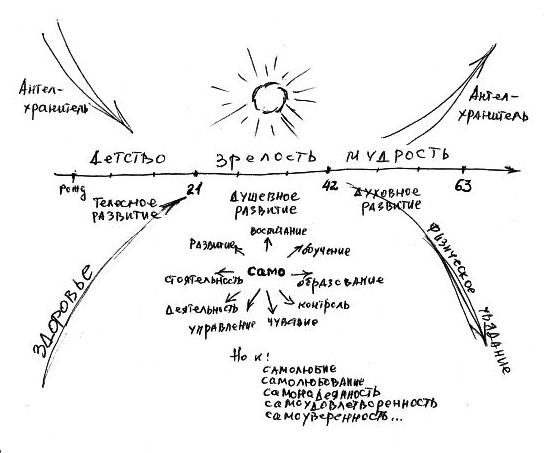 Ангел-
хранитель
Ангел-
хранитель
Детство
Зрелость
Мудрость
Рожд
21
42
63
Телесное
развитие
Душевное
развитие
Духовное
развитие
Здоровье
Физическое увядание
воспитание
развитие
обучение
стоятельность
Само
образование
деятельность
контроль
управление
чувствие
Но и!
самолюбие
самолюбование
самонадеянность
самоудовлетворенность
самоуверенность...